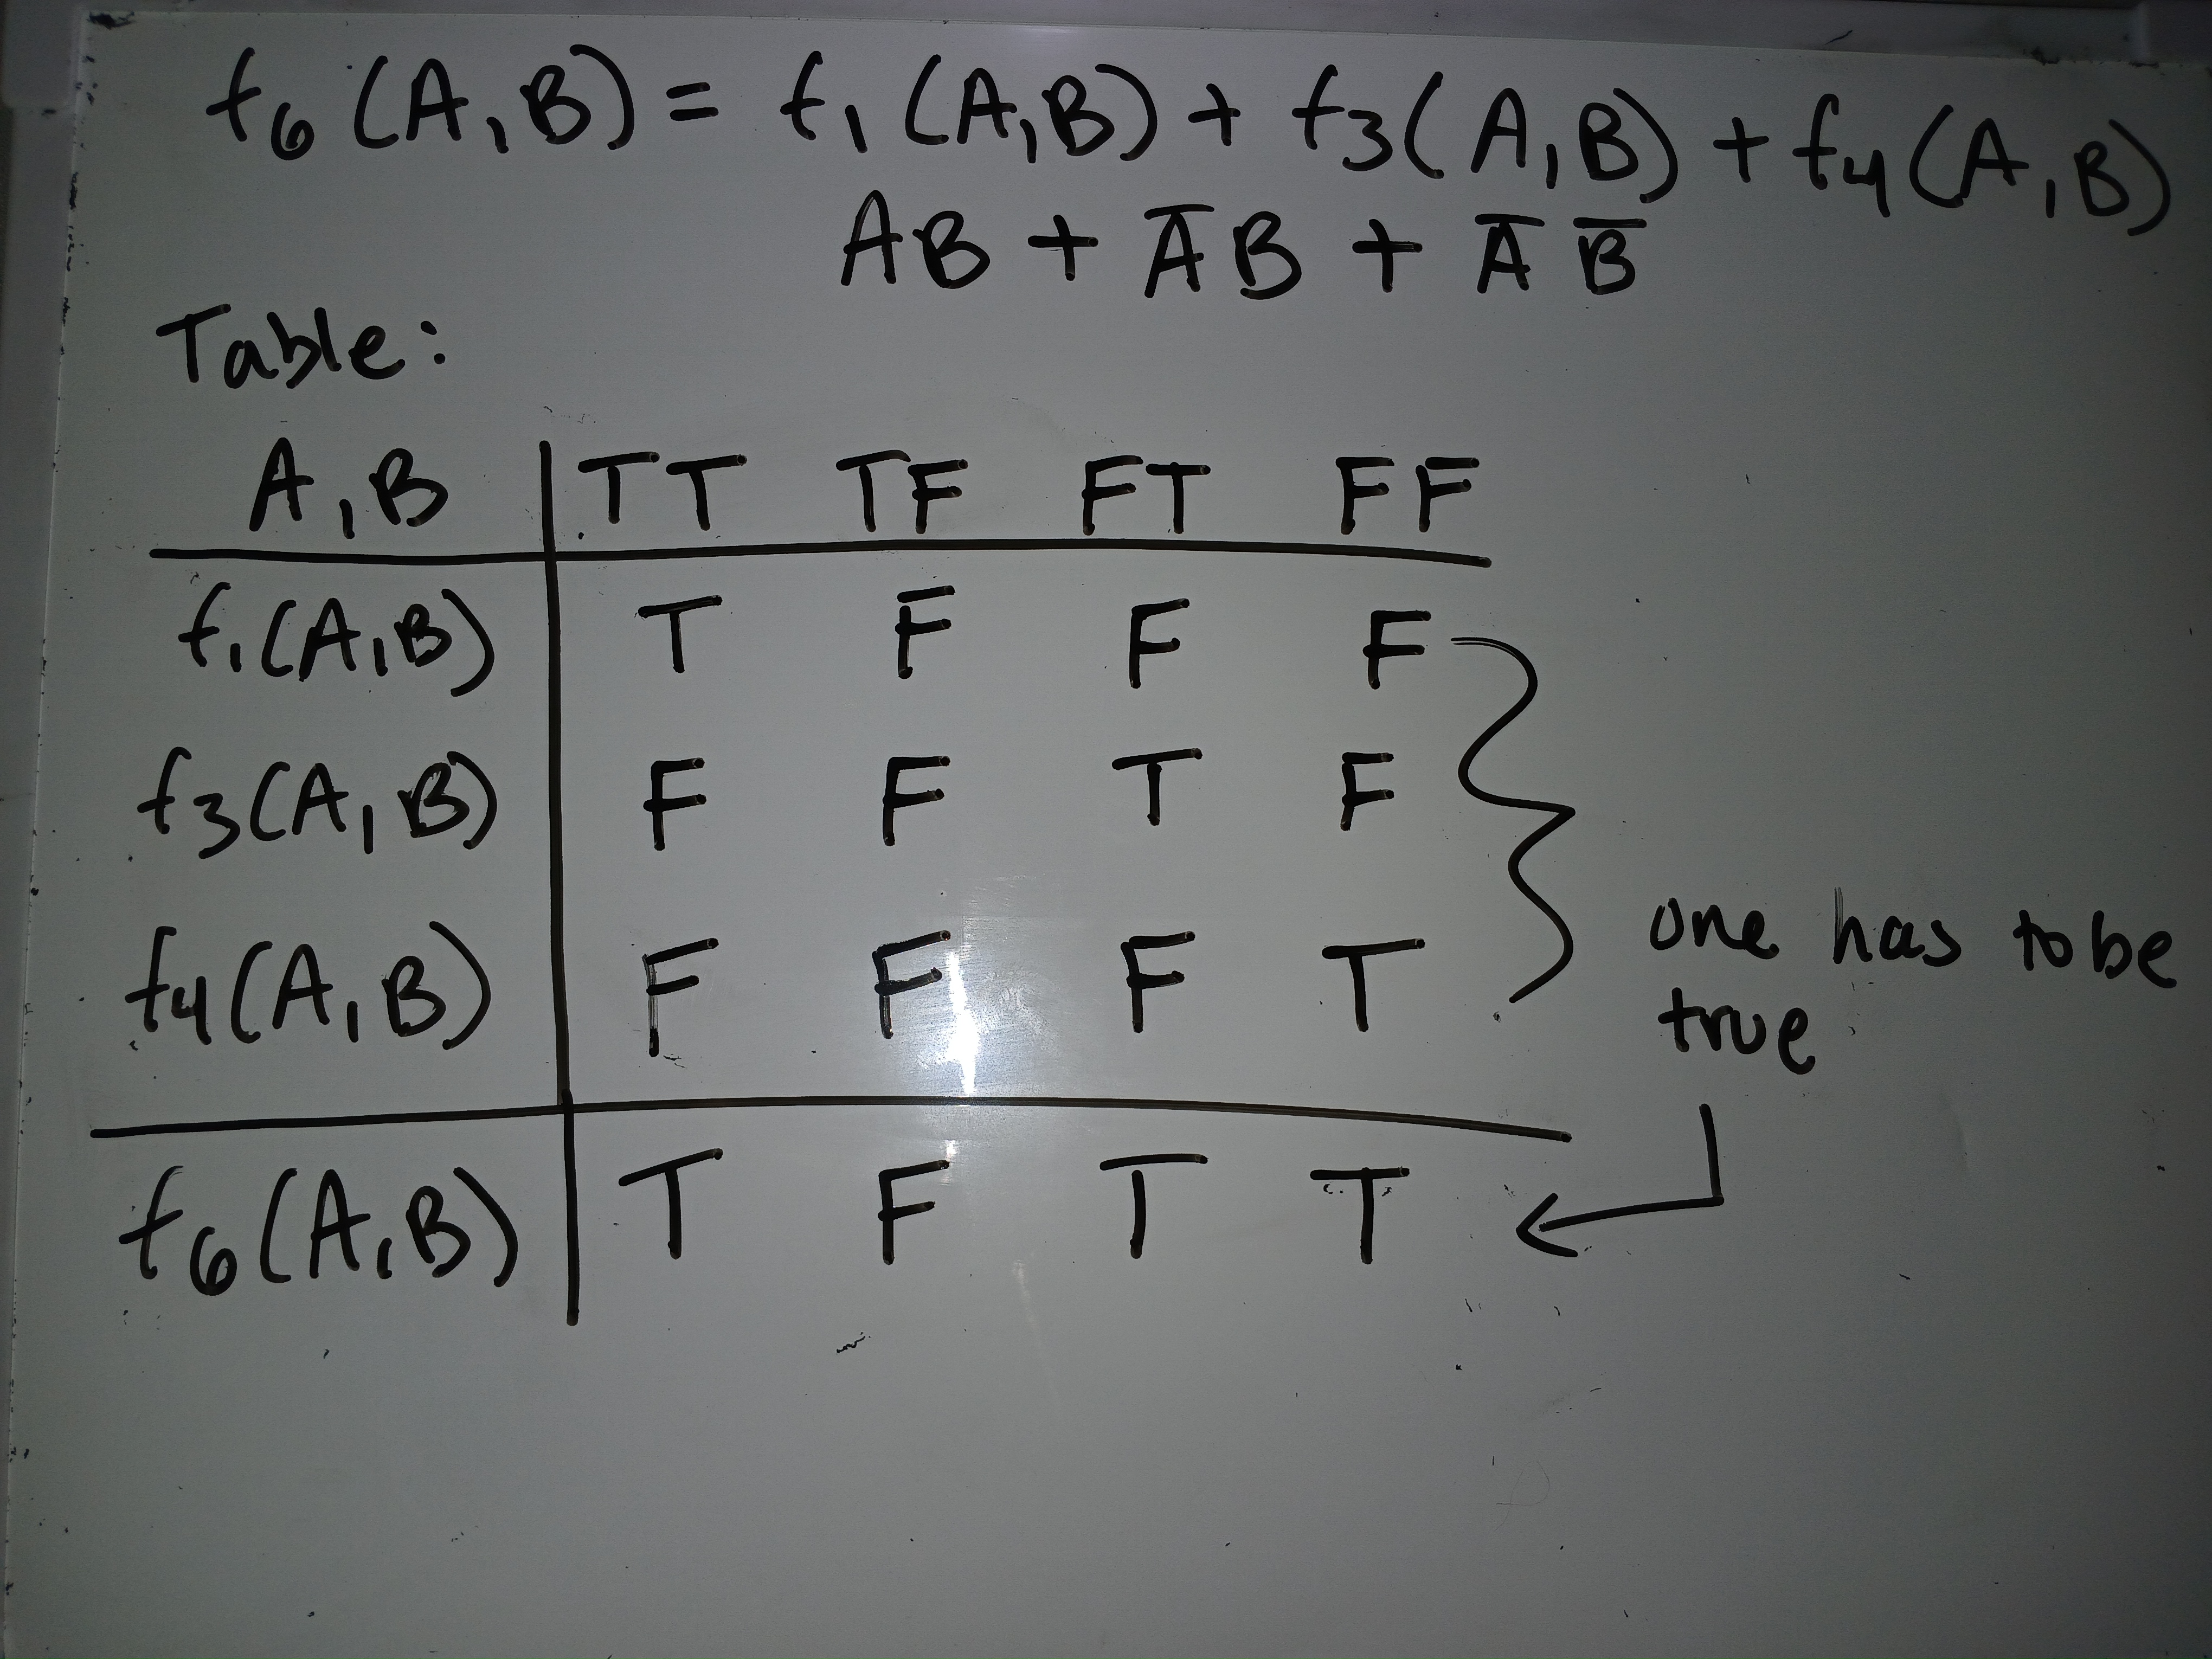 f₆(A,B) = f₁(A,B) + f₃(A,B) + f₄(A,B)
AB + A̅B + A̅ B̅
Table:
A,B | TT TF FT FF
f₁(A,B) | T F F F
f₃(A,B) | F F T F
f₄(A,B) | F F F T
one has to be
true
f₆(A,B) | T F T T